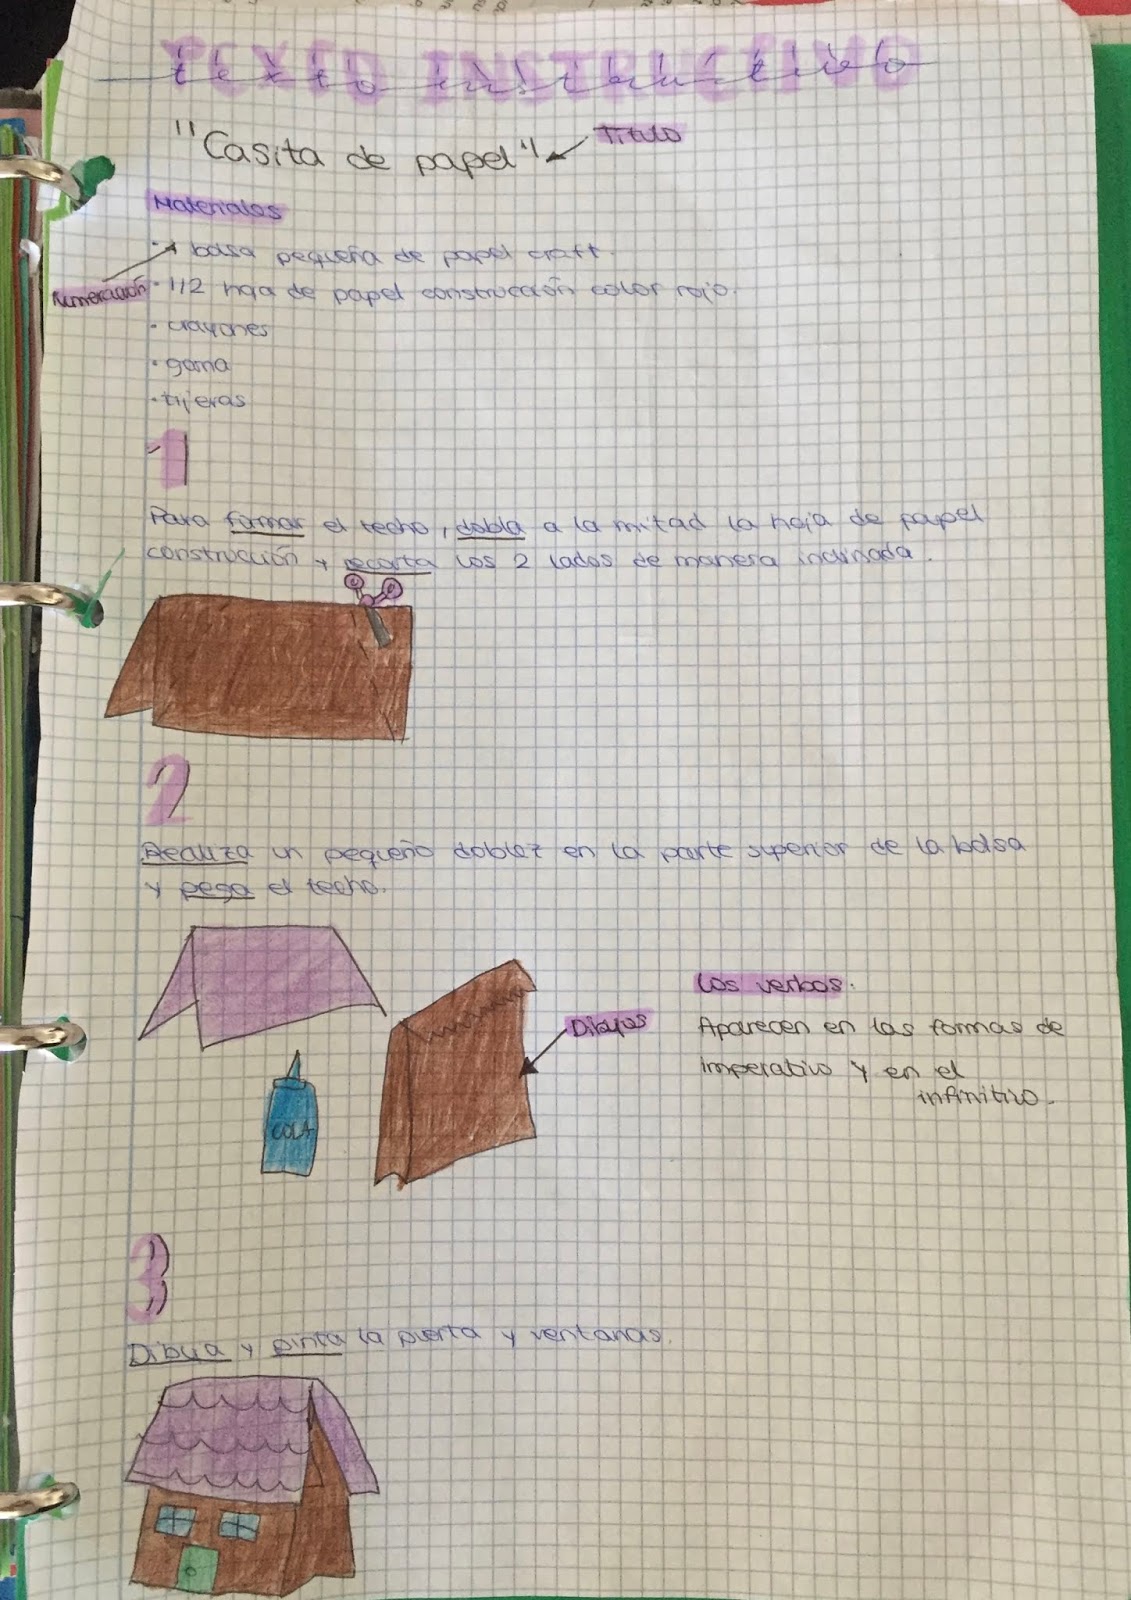 TEXTO INSTRUCTIVO
texto instructivo
"Casita de papel"
Título
Materiales
· 1 bolsa pequeña de papel craft.
Numeración
· 1/2 hoja de papel construcción color rojo.
· crayones
· goma
· tijeras
1
Para formar el techo, dobla a la mitad la hoja de papel
construcción y recorta los 2 lados de manera inclinada.
2
Realiza un pequeño doblez en la parte superior de la bolsa
y pega el techo.
COLA
Dibujos
Los verbos.
Aparecen en las formas de
imperativo y en el
infinitivo.
3
Dibuja y pinta la puerta y ventanas.